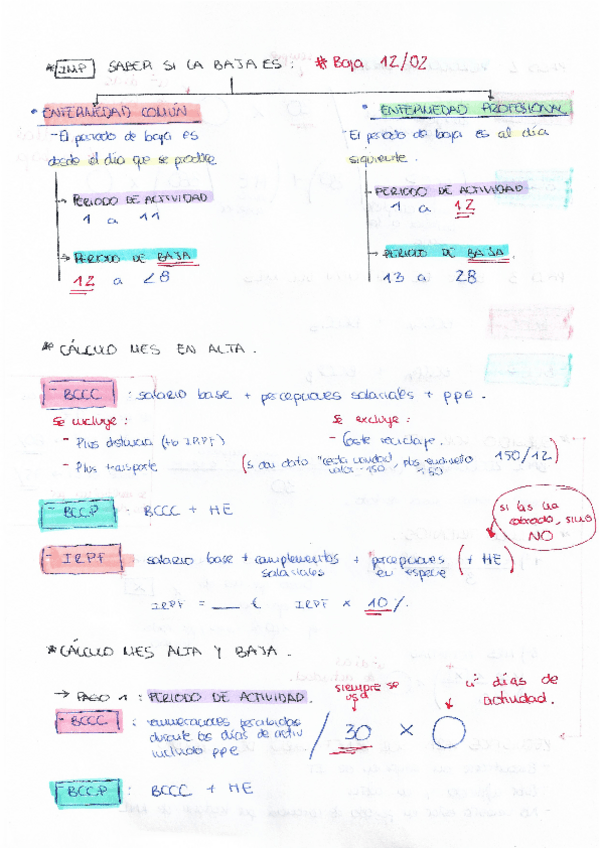 * IMP SABER SI LA BAJA ES: # Baja 12/02
• ENFERMEDAD COMÚN
- El periodo de baja es
desde el día que se produce
→ PERIODO DE ACTIVIDAD
1 a 11
→ PERIODO DE BAJA
12 a 28
• ENFERMEDAD PROFESIONAL
- El periodo de baja es al día
siguiente.
→ PERIODO DE ACTIVIDAD
1 a 12
→ PERIODO DE BAJA
13 a 28
* CÁLCULO MES EN ALTA.
- BCCC : salario base + percepciones salariales + ppe.
Se incluye:
- Plus distancia (+b IRPF)
- Plus transporte
Se excluye:
- Coste reciclaje.
(si dan dato "cesta navidad 150/12)
- BCCP : BCCC + HE
si las ha
cobrado, sino
NO
- IRPF : salario base + complementos salariales + percepciones en especie (+ HE)
IRPF = ___ € IRPF × 10%.
* CÁLCULO MES ALTA Y BAJA.
→ PAGO 1 : PERIODO DE ACTIVIDAD.
siempre se
usa
nº días de
actividad.
- BCCC : remuneraciones
durante los días de activ
incluido ppe
/ 30 ×
BCCP : BCCC + HE